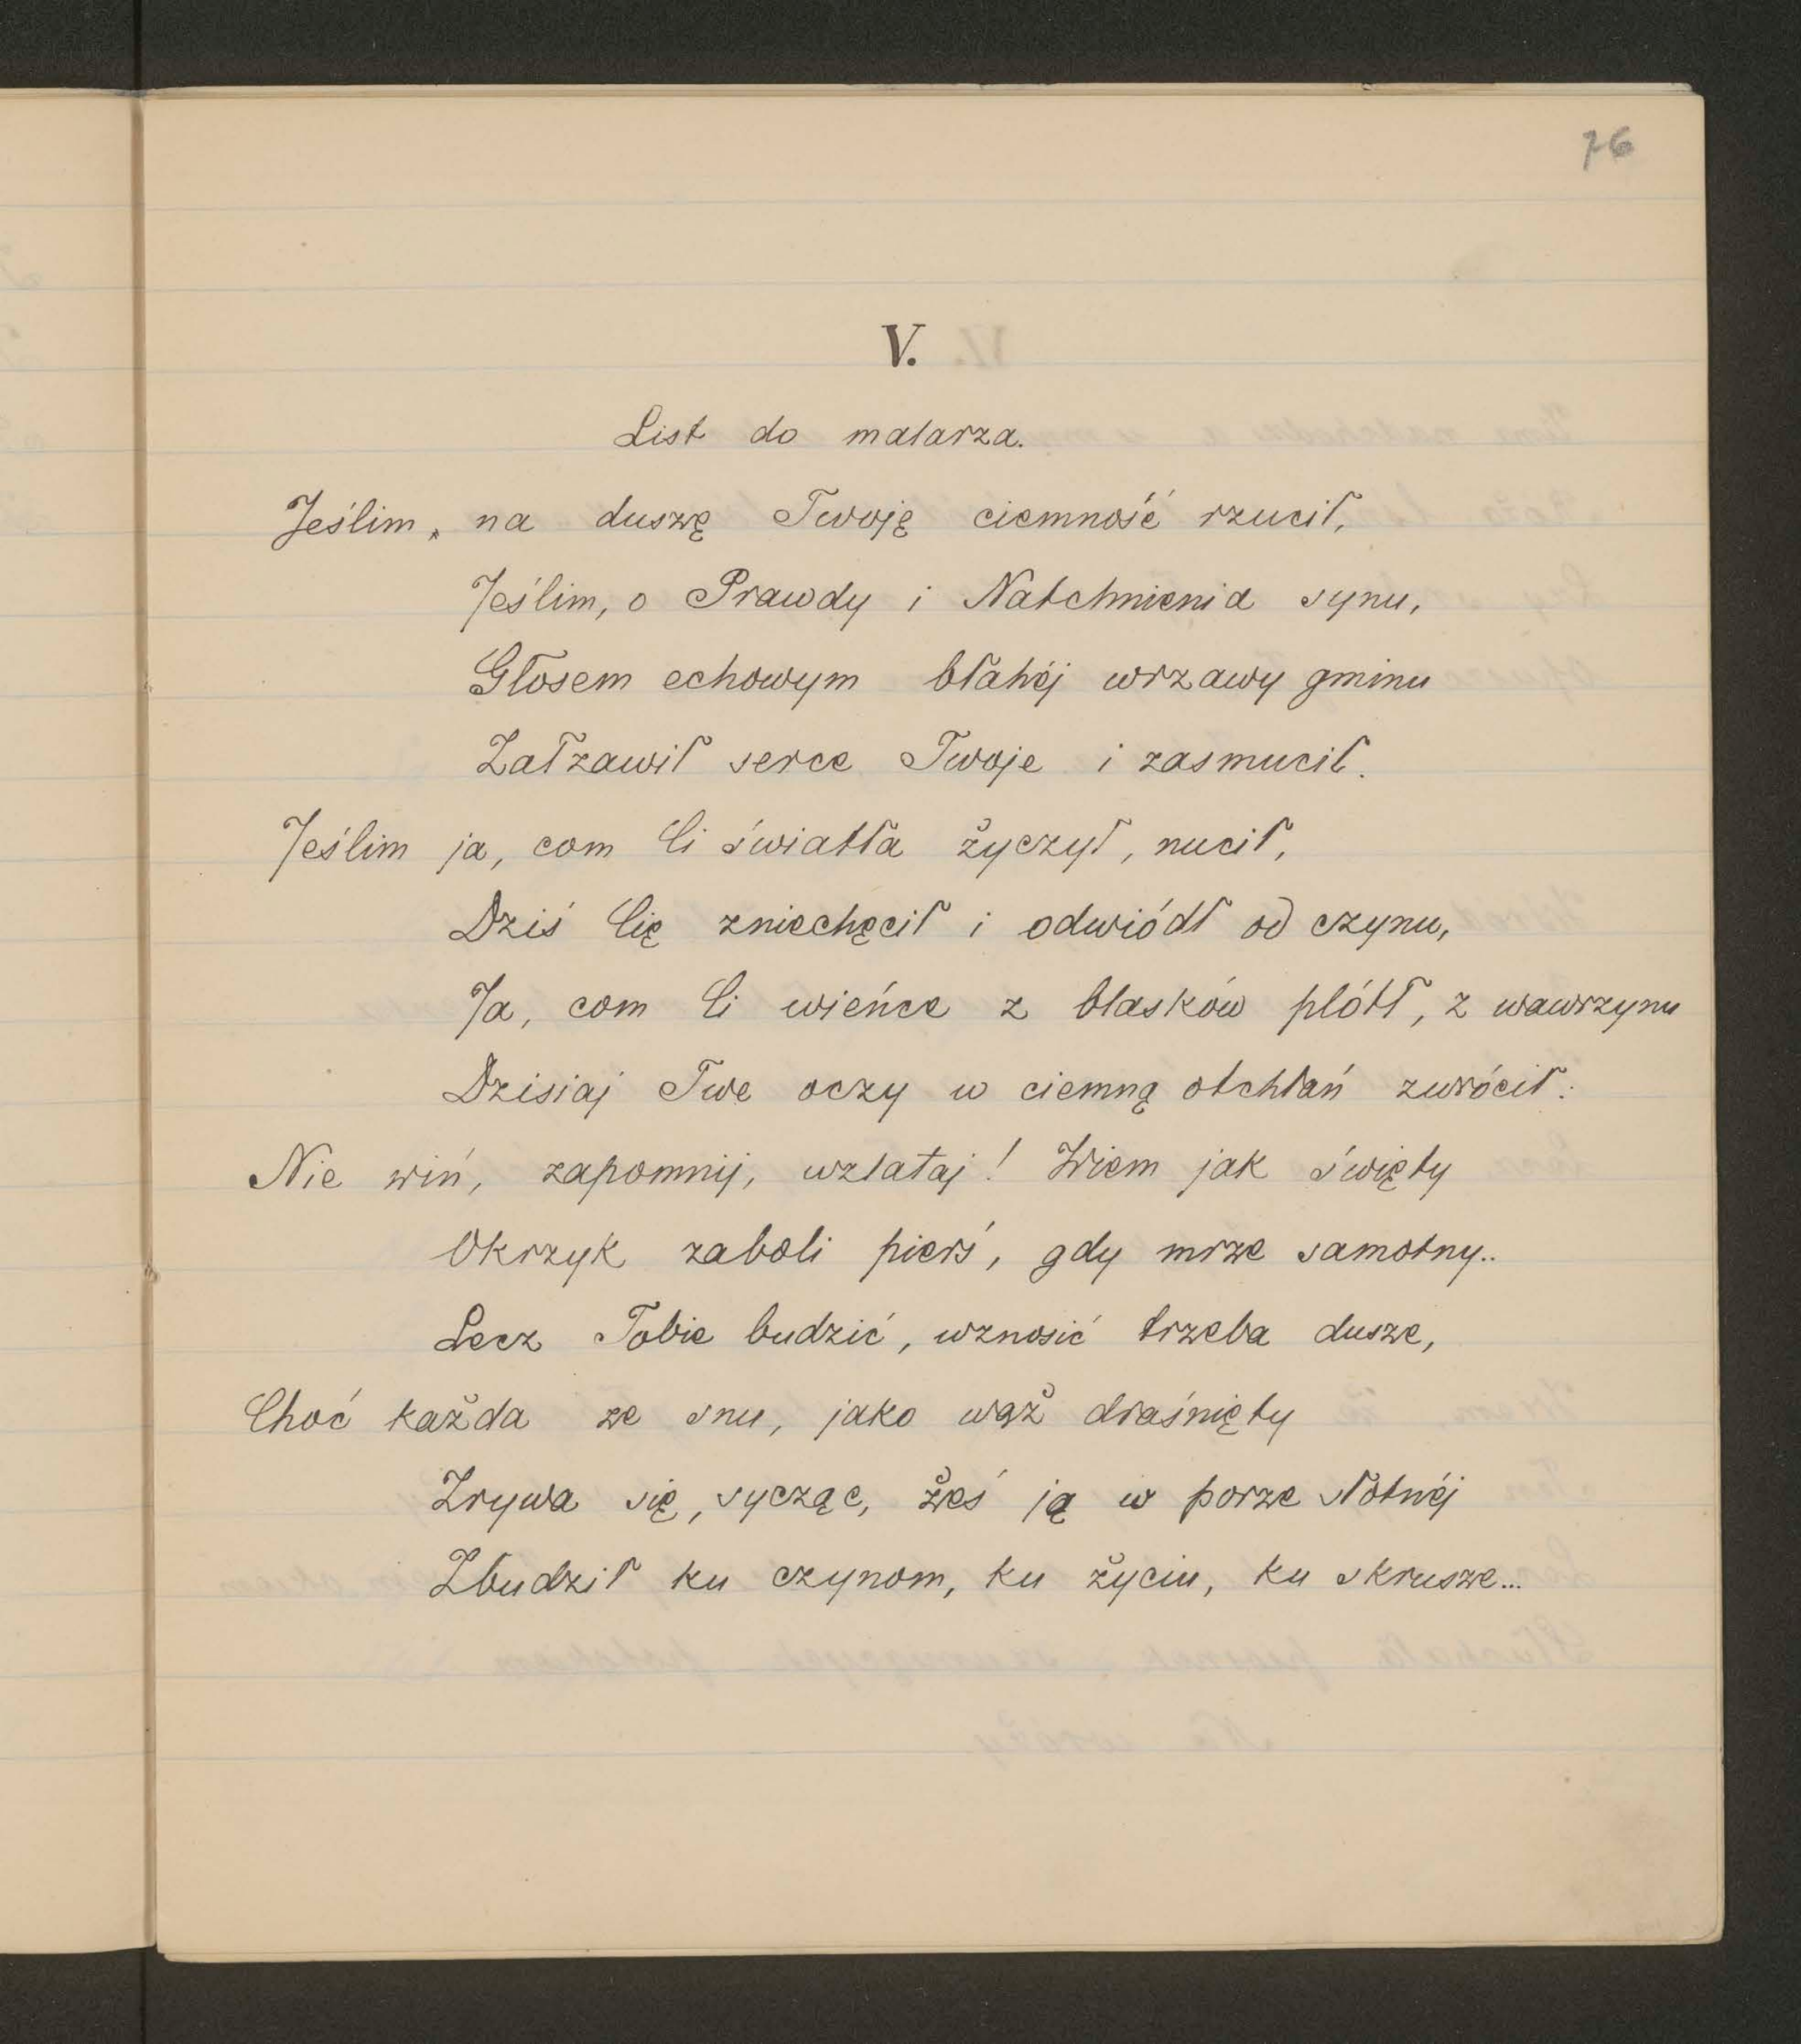 76
V.
List do malarza.
Jeślim, na duszę Twoję ciemność rzucił,
Jeślim, o Prawdy i Natchnienia synu,
Głosem echowym błahéj wrzawy gminu
Załzawił serce Twoje i zasmucił.
Jeślim ja, com Ci światła życzył, nucił,
Dziś Cię zniechęcił i odwiódł od czynu,
Ja, com Ci wieńce z blasków plótł, z wawrzynu
Dzisiaj Twe oczy w ciemną otchłań zwrócił:
Nie wiń, zapomnij, wzlataj! Wiem jak święty
Okrzyk zaboli pierś, gdy mrze samotny..
Lecz Tobie budzić, wznosić trzeba dusze,
Choć każda ze snu, jako wąż draśnięty
Zrywa się, sycząc, żeś ją w porze słotnéj
Zbudził ku czynom, ku życiu, ku skrusze...